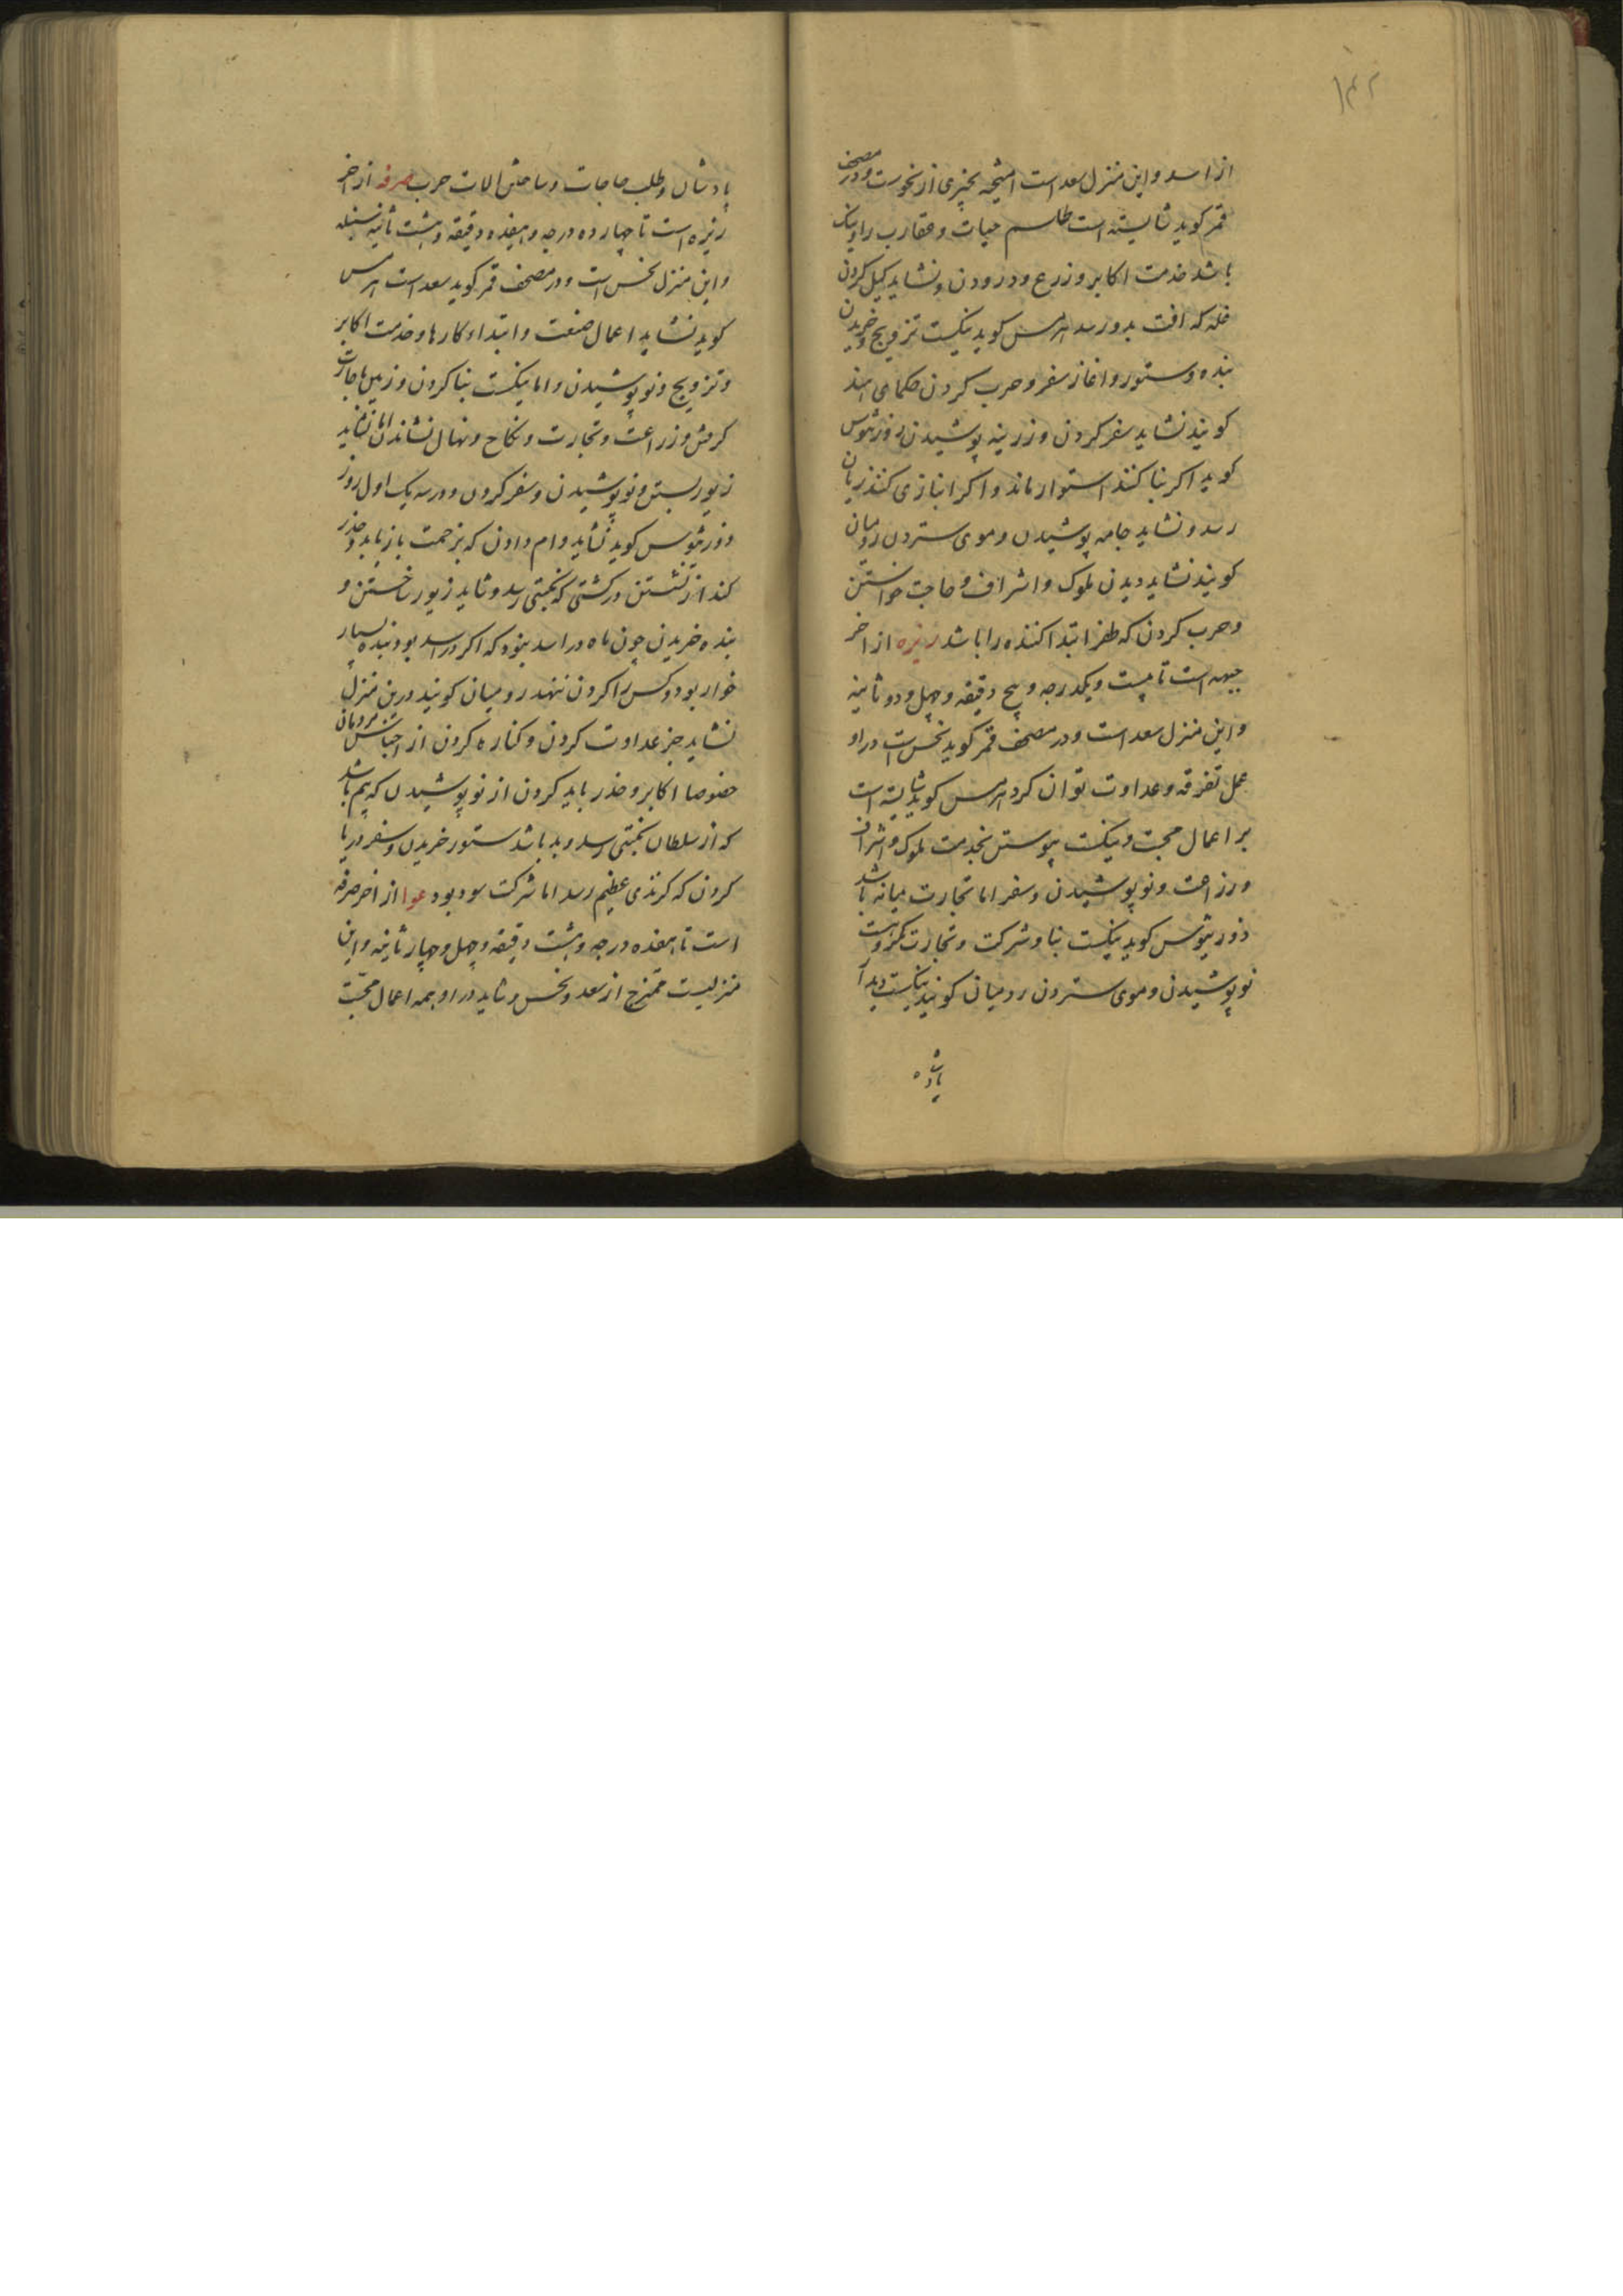 ۱۴۲
از اسد و این منزل سعد است امتیحه بچیزی از نحوست و در مصحف
قمر گوید شایسته است طلسم حیات و عقارب را و نیک
باشد خدمت اکابر و زرع و درودن و نشاید کیل کردن
غله که افت بدو رسد هرمس کوید نیکست تزویج و خریدن
بنده و ستور و اغاز سفر و حرب کردن حکمای هند
کویند نشاید سفر کردن و زرینه پوشیدن ذورثیوس
کوید اکر بنا کنند استوار ماند و اکر انبازی کنند زیان
رسد و نشاید جامه پوشیدن و موی ستردن رومیان
کویند نشاید دیدن ملوک و اشراف و حاجت خواستن
و حرب کردن که ظفر ابتدا کننده را باشد زبره از اخر
جبهه است تا بیست و یکدرجه و پنج دقیقه و چهل و دو ثانیه
و این منزل سعد است و در مصحف قمر کوید نحس است در او
عمل تفرقه و عداوت توان کرد هرمس کوید شایسته است
بر اعمال محبت و نیکست پیوستن بخدمت ملوک و اشراف
و زراعت و نو پوشیدن و سفر اما تجارت میانه باشد
ذورثیوس کوید نیکست بنا و شرکت و تجارت
نو پوشیدن و موی ستردن رومیان کویند نیکست دیدن
پادشاه
پادشاهان و طلب حاجات و ساختن الات حرب صرفه از اخر
زبره است تا چهارده درجه و هفده دقیقه و هشت ثانیه سنبله
و این منزل نحس است و در مصحف قمر کوید سعد است هرمس
کوید نشاید اعمال صنعت و ابتداء کارها و خدمت اکابر
و تزویج و نو پوشیدن و اما نیکست بنا کردن و زمین باجارت
کرفتن و زراعت و تجارت و نکاح و نهال نشاندن اما نشاید
زیور بستن و نو پوشیدن و سفر کردن و در سه یک اول روز
ذورثیوس کوید نشاید وام دادن که بزحمت باز یابد و حذر
کند از نشستن در کشتی که نکبتی رسد و شاید زیور ساختن و
بنده خریدن چون ماه در اسد نبود که اکر در اسد بود بنده بسیار
خوار بود و کس را کردن ننهد رومیان کویند درین منزل
نشاید جز عداوت کردن و کناره کردن از اجناس مردمان
خصوصا اکابر و حذر باید کردن از نو پوشیدن که بیم باشد
که از سلطان نکبتی رسد و بد باشد ستور خریدن و سفر دریا
کردن که کزندی عظیم رسد اما شرکت سود بود عوا از اخر صرفه
است تا هفده درجه و هشت دقیقه و چهل و چهار ثانیه و این
منزلیست ممتزج از سعد و نحس و شاید در او همه اعمال محبت